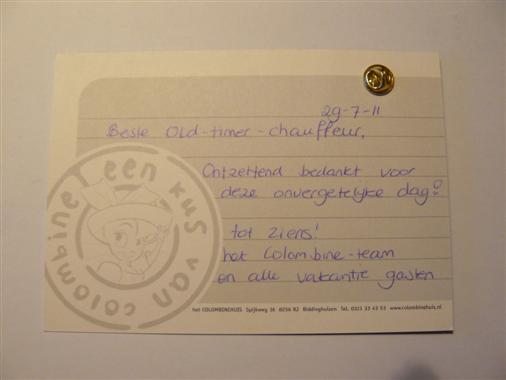 29-7-11
Beste Old-timer-chauffeur,
Ontzettend bedankt voor
deze onvergetelijke dag!
tot ziens!
het Colombine-team
en alle vakantie gasten
een kus van colombine
het COLOMBINEHUIS Spijkweg 36 8256 RJ Biddinghuizen Tel. 0321 33 43 53 www.colombinehuis.nl